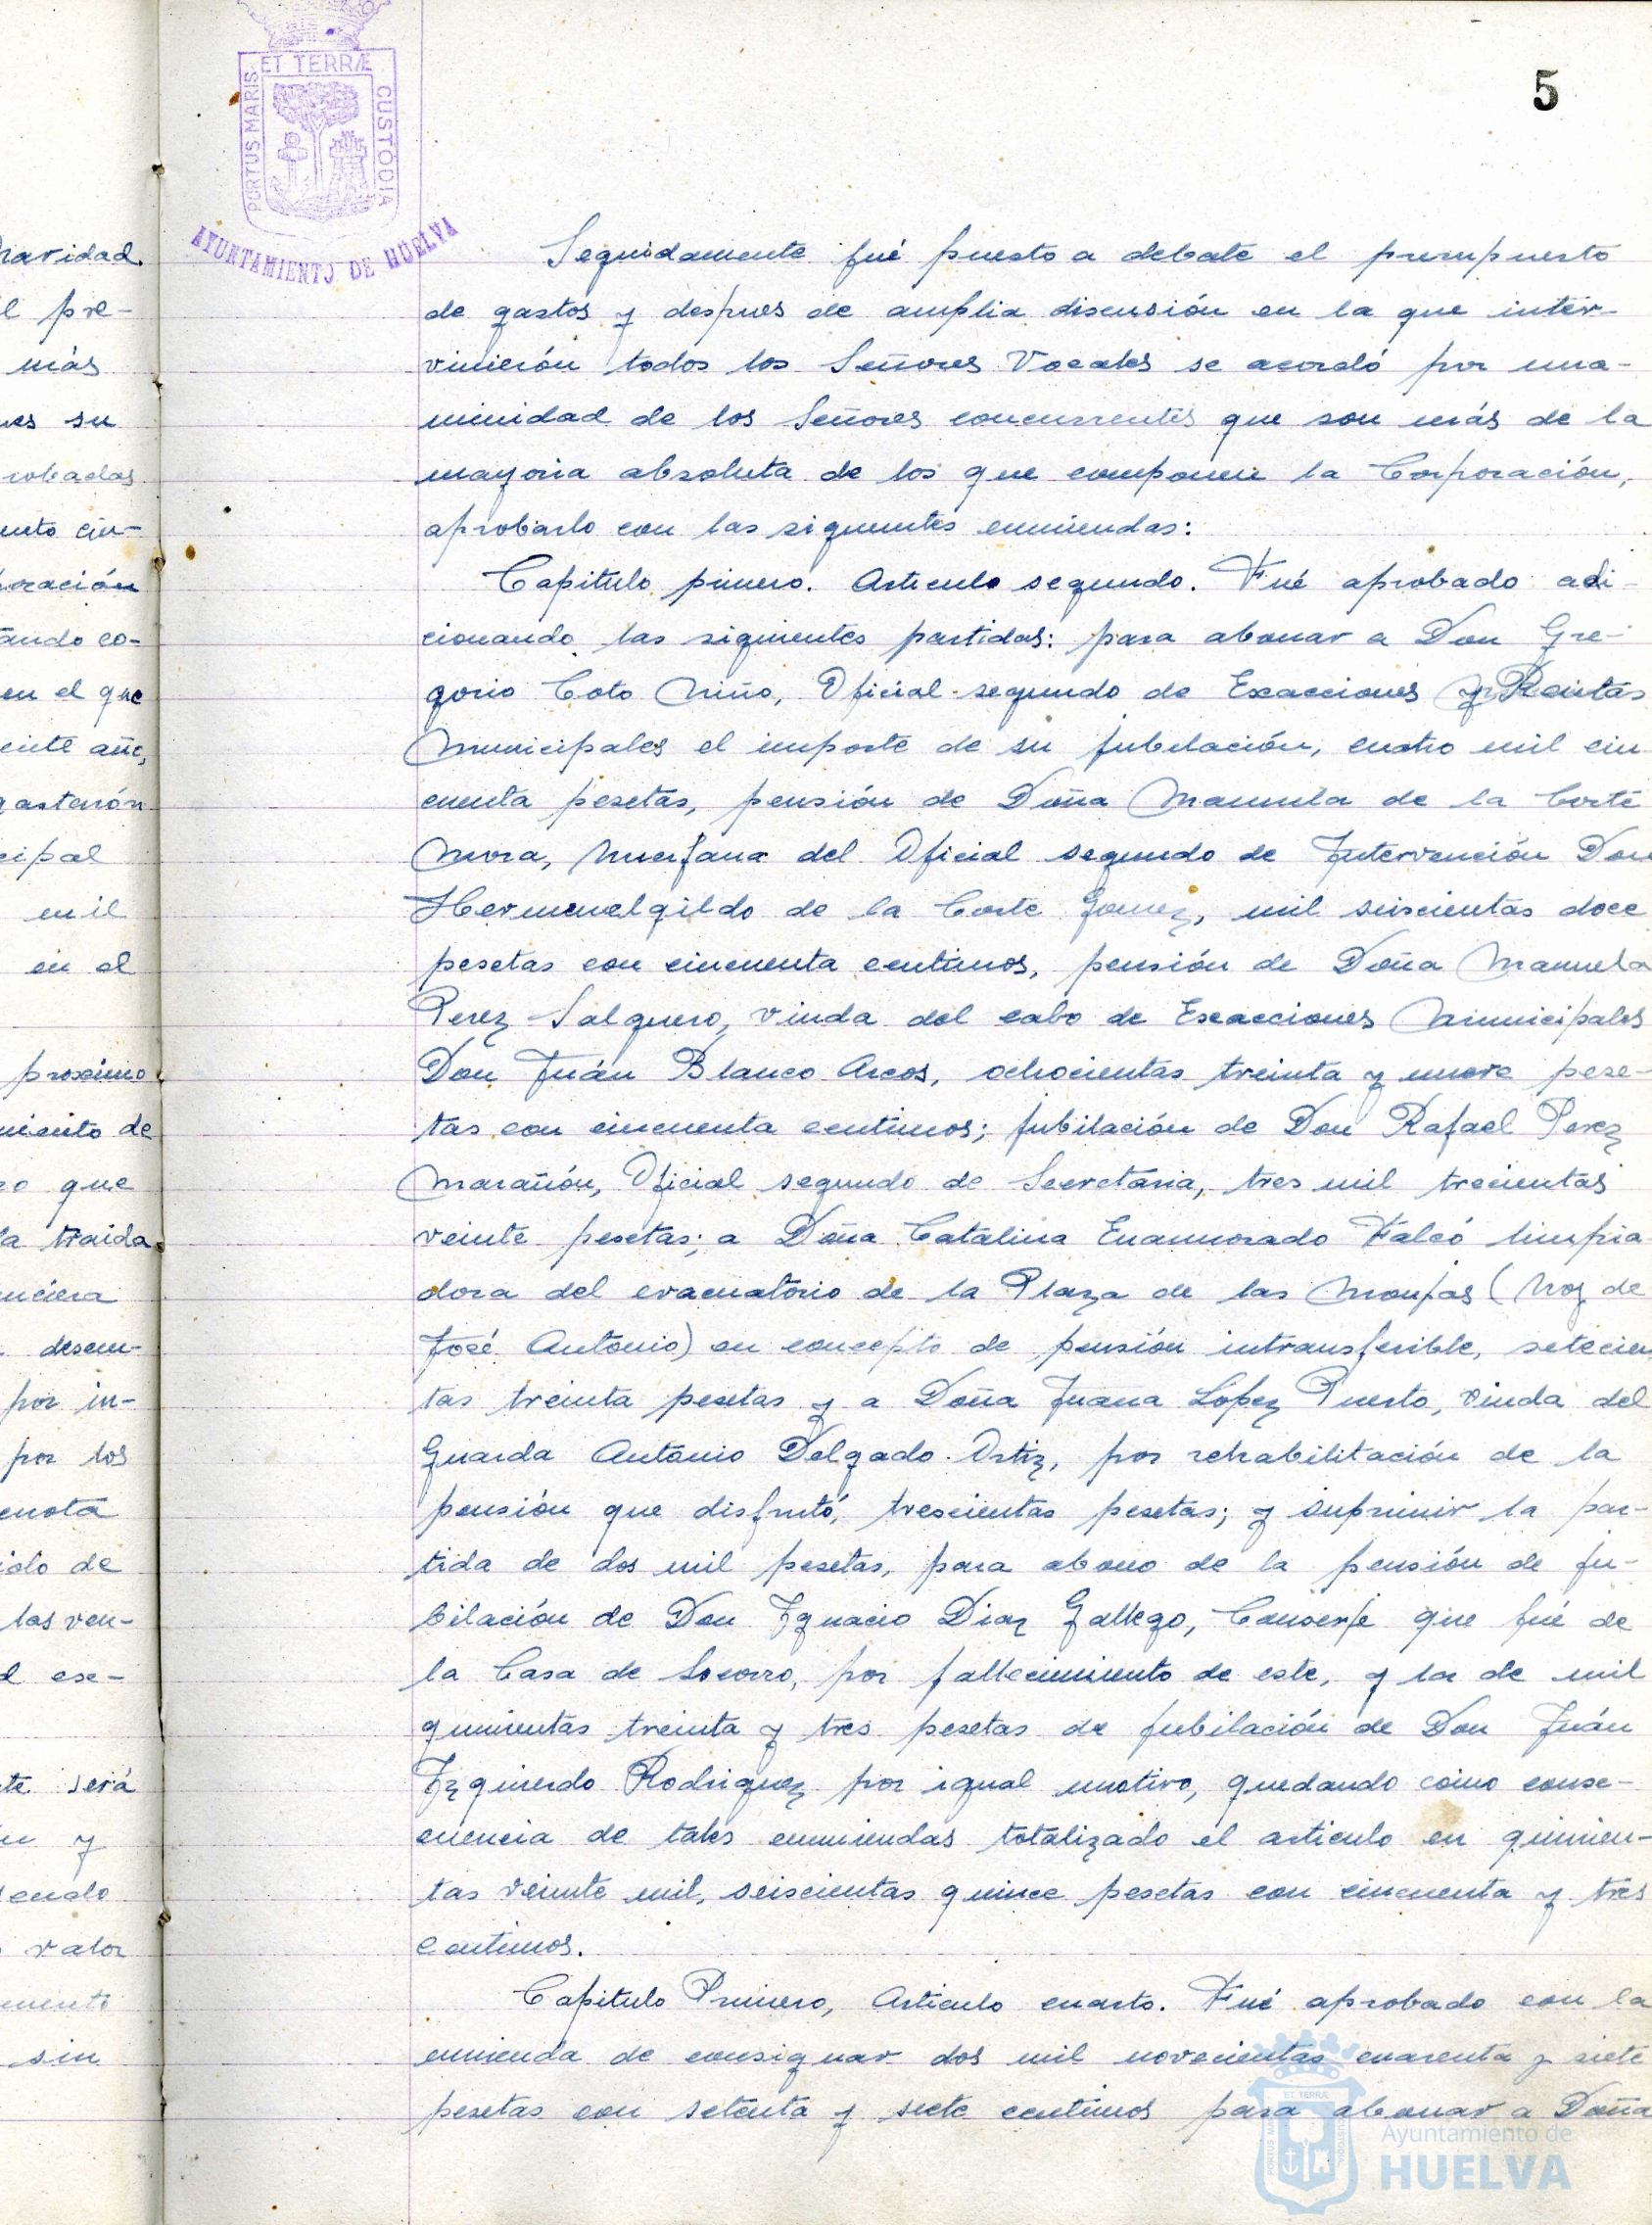 5
ET TERRÆ
PORTUS MARIS
CUSTODIA
AYUNTAMIENTO DE HUELVA
Seguidamente fué puesto a debate el presupuesto
de gastos y despues de amplia discusión en la que inter-
vinierón todos los Señores Vocales se acordó por una-
nimidad de los Señores concurrentes que son más de la
mayoria absoluta de los que componen la Corporación,
aprobarlo con las siguientes enmiendas:
Capitulo primero. Articulo segundo. Fué aprobado adi-
cionando las siguientes partidas: para abonar a Don Gre-
gorio Coto Niño, Oficial segundo de Exacciones y Rentas
Municipales el importe de su jubilación, cuatro mil cin
cuenta pesetas, pensión de Doña Manuela de la Corte
Mora, huerfana del Oficial segundo de Intervención Don
Hermenelgildo de la Corte Gomez, mil seiscientas doce
pesetas con cincuenta centimos, pensión de Doña Manuela
Perez Salguero, viuda del cabo de Exacciones Municipales
Don Juán Blanco Arcos, ochocientas treinta y nueve pese-
tas con cincuenta centimos; jubilación de Don Rafael Perez
Marañón, Oficial segundo de Secretaria, tres mil trecientas
veinte pesetas; a Doña Catalina Enamorado Falcó limpia
dora del evacuatorio de la Plaza de las Monjas (hoy de
José Antonio) en concepto de pensión intransferible, setecien
tas treinta pesetas y a Doña Juana Lopez Puerto, viuda del
Guarda Antonio Delgado Ortiz, por rehabilitación de la
pensión que disfrutó, trescientas pesetas; y suprimir la par-
tida de dos mil pesetas, para abono de la pensión de ju-
bilación de Don Ignacio Diaz Gallego, Conserje que fué de
la Casa de Socorro, por fallecimiento de este, y la de mil
quinientas treinta y tres pesetas de jubilación de Don Juán
Izquierdo Rodriguez por igual motivo, quedando como conse-
cuencia de tales enmiendas totalizado el articulo en quinien-
tas veinte mil, seiscientas quince pesetas con cincuenta y tres
centimos.
Capitulo Primero, Articulo cuarto. Fué aprobado con la
enmienda de consignar dos mil novecientas cuarenta y siete
pesetas con setenta y siete centimos para abonar a Doña
Ayuntamiento de
HUELVA